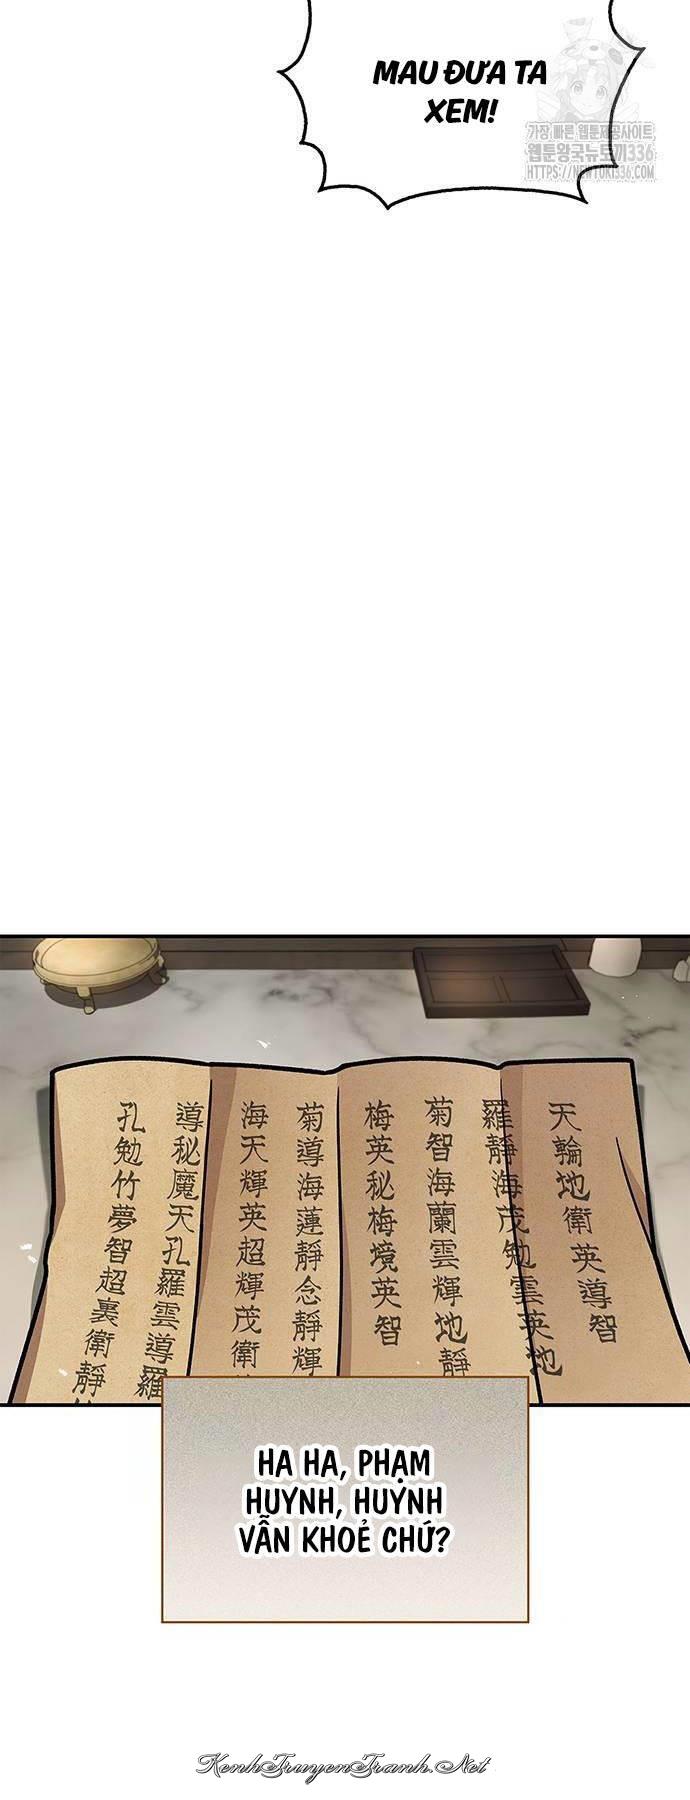 MAU ĐƯA TA
XEM!
가장 빠른 웹툰제공사이트
웹툰왕국뉴토끼336
HTTPS://NEWTOKI336.COM
天輪地衛英導智
羅靜海茂勉雲英地
菊智海蘭雲輝地靜
梅英秘梅境英智
菊導海蓮靜念靜輝
海天輝英超輝茂衛
導秘魔天孔羅雲導羅
孔勉竹夢智超裏衛靜
HA HA, PHẠM
HUYNH, HUYNH
VẪN KHOẺ CHỨ?
KenhTruyenTranh.Net